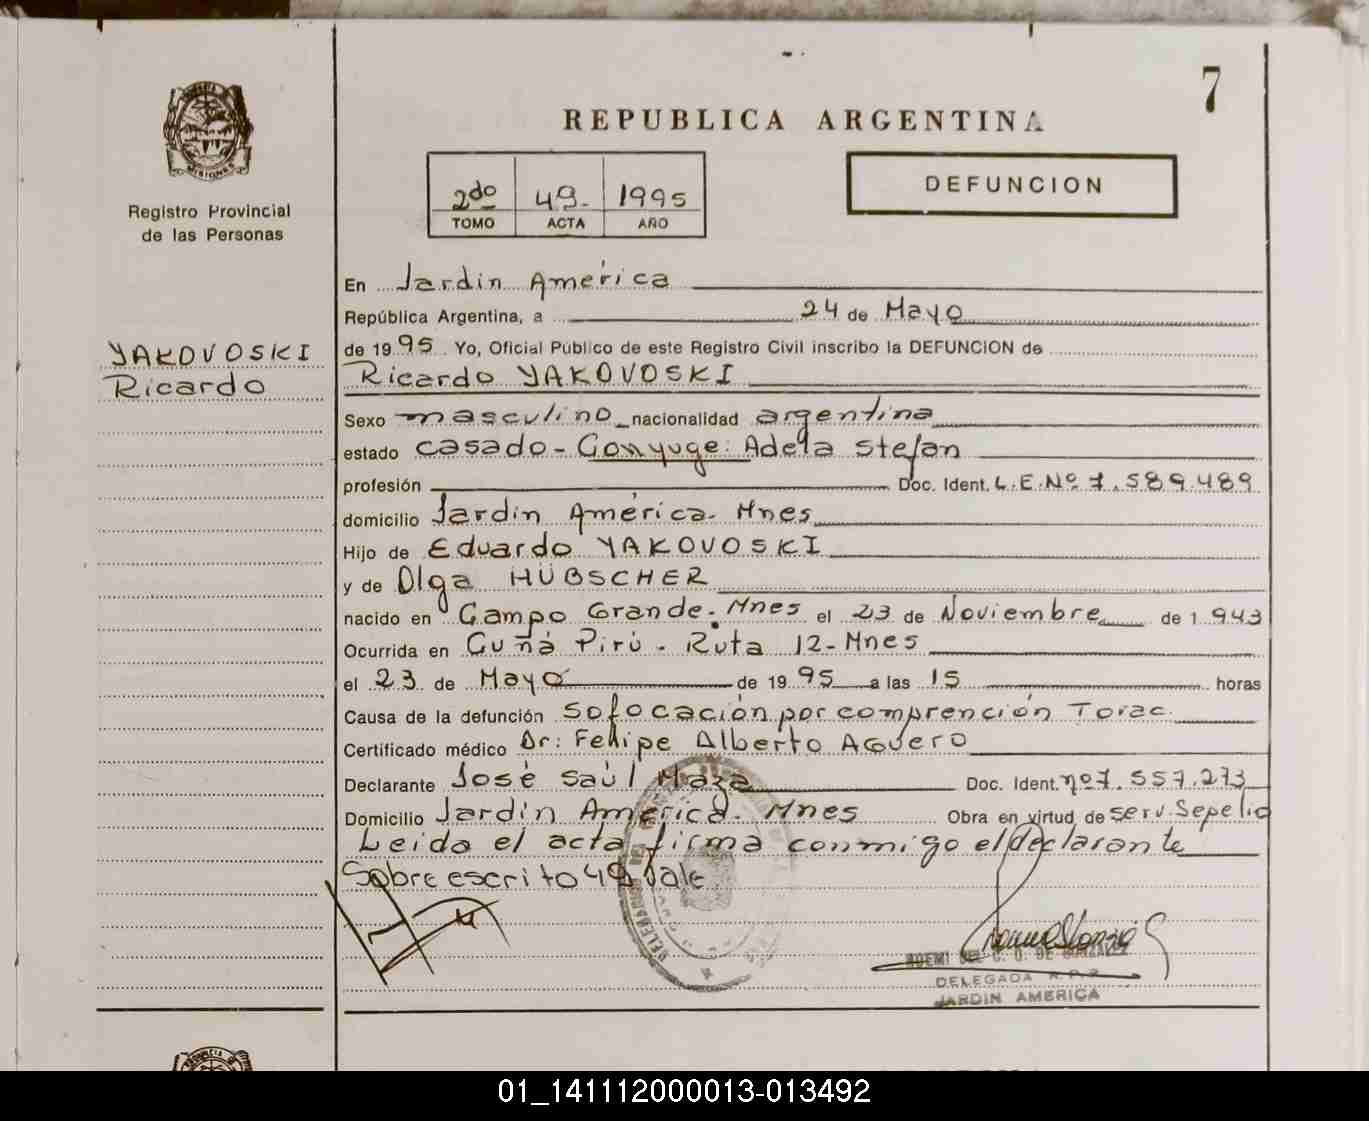 7
REPUBLICA ARGENTINA
MISIONES
Registro Provincial
de las Personas
2do 49- 1995
TOMO ACTA AÑO
DEFUNCION
YAKOVOSKI
Ricardo
En Jardin América
República Argentina, a 24 de Mayo
de 19 95 Yo, Oficial Público de este Registro Civil inscribo la DEFUNCION de
Ricardo YAKOVOSKI
Sexo masculino nacionalidad argentina
estado casado - Conyuge: Adela Stefan
profesión Doc. Ident. L.E.Nº 7.589.489
domicilio Jardin América. Mnes
Hijo de Eduardo YAKOVOSKI
y de Olga HÜBSCHER
nacido en Campo Grande. Mnes el 23 de Noviembre de 1 943
Ocurrida en Cuñá Pirú. Ruta 12- Mnes
el 23 de Mayo de 19 95 a las 15 horas
Causa de la defunción Sofocación por comprención Torac.
Certificado médico Dr: Felipe Alberto Aguero
Declarante José Saúl Maza Doc. Ident. nº 7.557.273
Domicilio Jardin América. Mnes Obra en virtud de serv. Sepelio
Leida el acta firma conmigo el declarante
Sobre escrito 49 Vale
NOEMI DEL C. G. DE GONZALEZ
DELEGADA R.P.P.
JARDIN AMERICA
01_141112000013-013492